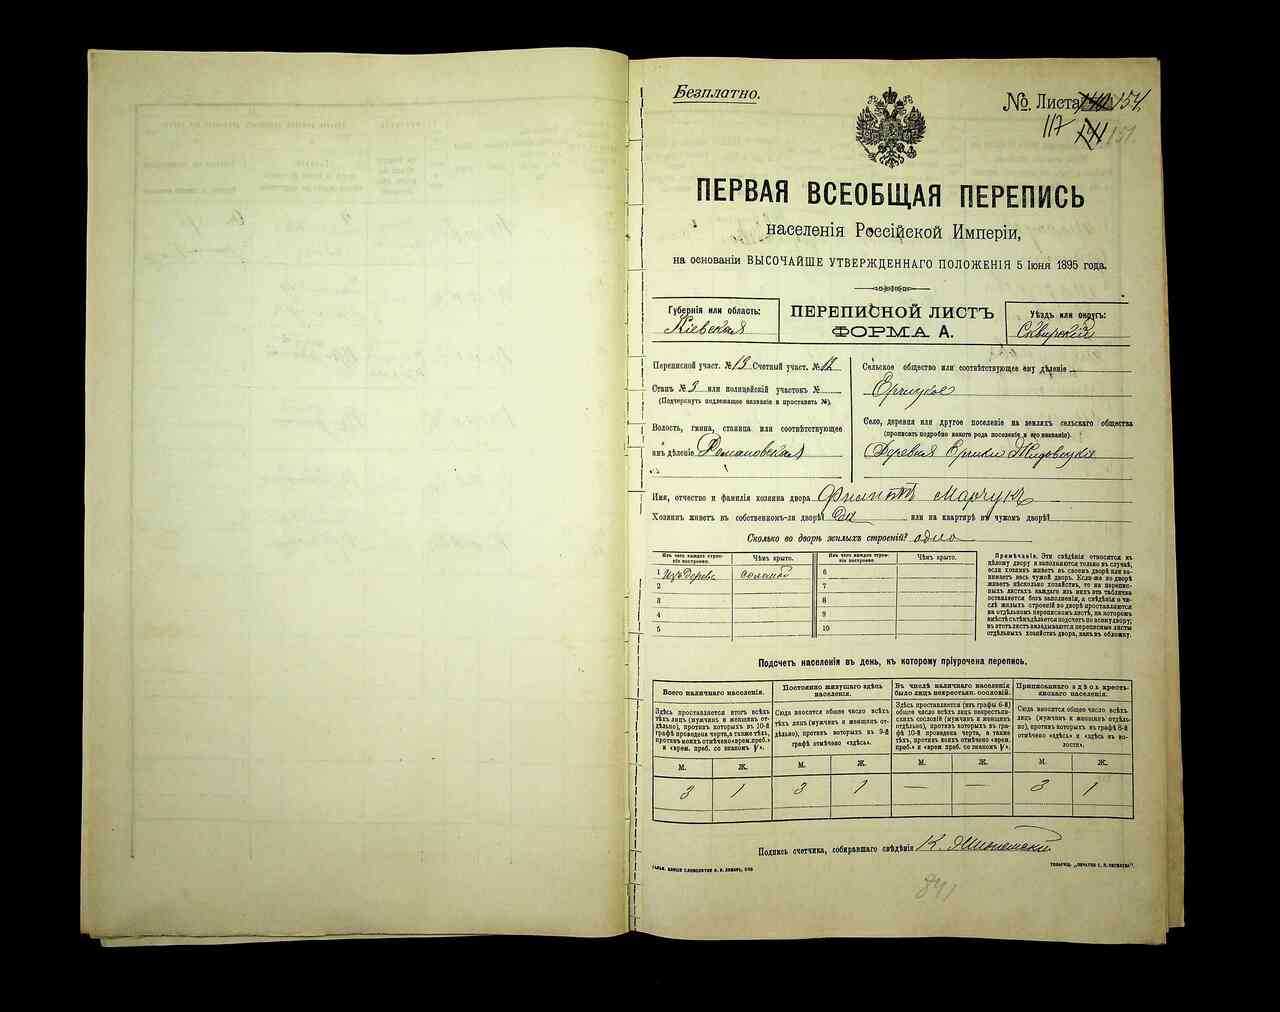 Безплатно.
№ Листа 140 154
117 141 151.
ПЕРВАЯ ВСЕОБЩАЯ ПЕРЕПИСЬ
населенія Россійской Имперіи,
на основаніи ВЫСОЧАЙШЕ УТВЕРЖДЕННАГО ПОЛОЖЕНІЯ 5 Іюня 1895 года.
Губернія или область:
Кіевская
ПЕРЕПИСНОЙ ЛИСТЪ
ФОРМА А.
Уѣздъ или округъ:
Сквирскій
Переписной участ. № 13 Счетный участ. № 12
Станъ № 3 или полицейскій участокъ №
(Подчеркнуть подлежащее названіе и проставить №).
Волость, гмина, станица или соотвѣтствующее
имъ дѣленіе Романовская
Сельское общество или соотвѣтствующее ему дѣленіе
Ерчицкое
Село, деревня или другое поселеніе на земляхъ сельскаго общества
(прописать подробно какого рода поселеніе и его названіе).
Деревня Ерчики
Имя, отчество и фамилія хозяина двора Филиппъ Марчукъ
Хозяинъ живетъ въ собственномъ-ли дворѣ? Да или на квартирѣ въ чужомъ дворѣ?
Сколько во дворѣ жилыхъ строеній? одно
Изъ чего каждое строеніе построено.
Чѣмъ крыто.
Изъ чего каждое строеніе построено.
Чѣмъ крыто.
1 Изъ дерева соломой 6
2 7
3 8
4 9
5 10
Примѣчаніе. Эти свѣдѣнія относятся къ
цѣлому двору и заполняются только въ случаѣ,
если хозяинъ живетъ въ своемъ дворѣ или занимаетъ
весь чужой дворъ. Если-же во дворѣ
живетъ нѣсколько хозяйствъ, то на переписныхъ
листахъ каждаго изъ нихъ эта табличка
оставляется безъ заполненія, а свѣдѣнія о числѣ
жилыхъ строеній во дворѣ проставляются
на отдѣльномъ переписномъ листѣ, на которомъ
вмѣстѣ съ тѣмъ дѣлается подсчетъ по всему двору;
въ этотъ листъ вкладываются переписные листы
отдѣльныхъ хозяйствъ двора, какъ въ обложку.
Подсчетъ населенія въ день, къ которому пріурочена перепись.
Всего наличнаго населенія.
Здѣсь проставляется итогъ всѣхъ
тѣхъ лицъ (мужчинъ и женщинъ отдѣльно),
противъ которыхъ въ 10-й
графѣ проведена черта, а также тѣхъ,
противъ коихъ отмѣчено «врем. преб.»
и «врем. преб. со знакомъ V».
Постоянно живущаго здѣсь населенія.
Сюда вносится общее число всѣхъ
тѣхъ лицъ (мужчинъ и женщинъ отдѣльно),
противъ которыхъ въ 9-й
графѣ отмѣчено «здѣсь».
Въ числѣ наличнаго населенія
было лицъ некрестьян. сословій.
Здѣсь проставляется (изъ графы 6-й)
общее число всѣхъ лицъ некрестьянскихъ
сословій (мужчинъ и женщинъ
отдѣльно), противъ которыхъ въ графѣ
10-й проведена черта, а также
тѣхъ, противъ коихъ отмѣчено «врем.
преб.» и «врем. преб. со знакомъ V».
Приписаннаго здѣсь крестьянскаго населенія.
Сюда вносится общее число всѣхъ
лицъ (мужчинъ и женщинъ отдѣльно),
противъ которыхъ въ графѣ 8-й
отмѣчено «здѣсь» и «здѣсь въ волости».
М. Ж. М. Ж. М. Ж. М. Ж.
3 1 3 1 — — 3 1
Подпись счетчика, собиравшаго свѣдѣнія К.
841